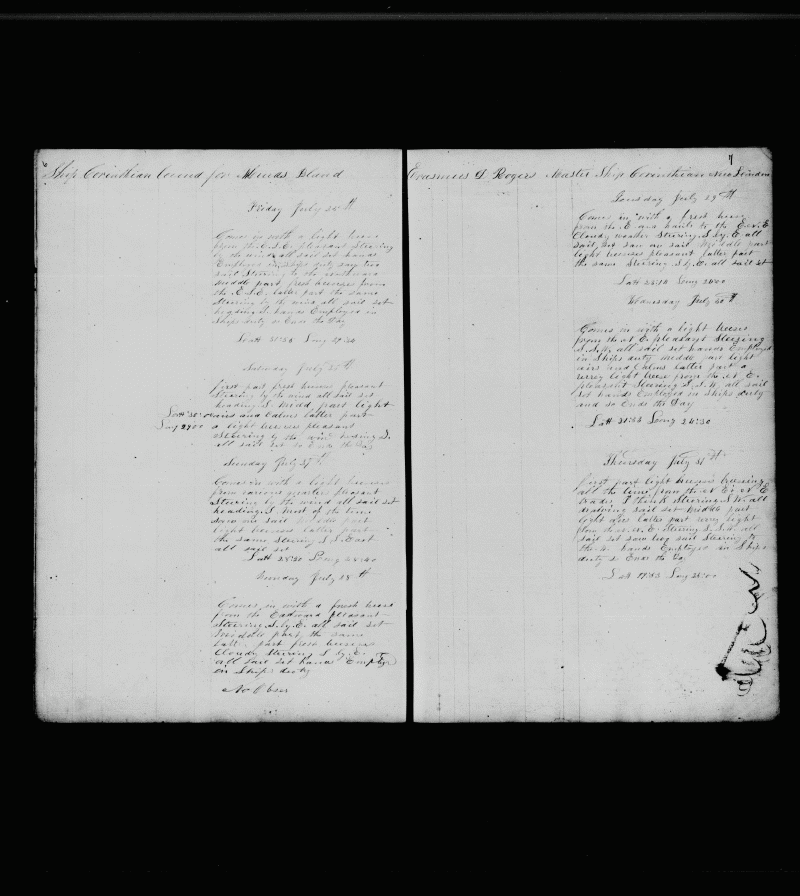 6
Ship Corinthian bound for Island
Friday July 25th
Comes in with a light breese
from the E.S.E. pleasant Steering
by the wind all sail set hands
Employed in Ships duty saw two
sail Steering to the
Middle part fresh breeses from
the E.S.E. latter part the same
Steering by the wind all sail set
heading S. hands Employed in
Ships duty so Ends the Day
Latt Long
Saturday July 26th
first part fresh breeses pleasant
Steering by the wind all sail set
heading S. Midd part light
airs and Calms latter part
Latt
Long 29.00
a light breeses pleasant
Steering by the wind heading S.
all sail set so Ends the Day
Sunday July 27th
Comes in with a light breeses
from various quarters pleasant
Steering by the wind all sail set
heading S. most of the time
one sail Middle part
light breeses latter part
the same Steering S.S.East
all sail set
Latt 28:20 Long
Monday July 28th
Comes in with a fresh breese
from the Eastward pleasant
Steering S.by.E. all sail set
Middle part, the same
latt part fresh breeses
Cloudy Steering S by.E.
all sail set hands Employed
in Ships duty
No Obser
7
Erasmus D Rogers Master Ship Corinthian New London
Tuesday July 29th
Comes in with a fresh breese
from the E. and hauls to the E.N.E.
Cloudy weather Steering S.by.E. all
sail set saw one sail Middle part
light breeses pleasant latter part
the same Steering S.by.E. all sail set
Latt Long
Wednesday July 30th
Comes in with a light breeses
from the N E. pleasant Steering
all sail set hands Employed
in Ships duty Middle part light
airs and Calms latter part a
verry light breese from the N.E.
pleasant Steering S.S.W. all sail
set hands Employed in Ships duty
and so Ends the Day
Latt Long 26:30
Thursday July 31st
first part light breeses
all the time from the N E & N E
trades I think Steering S.W. all
drawing sail set Middle part
light airs latter part verry light
from the N. E. Steering S.S.W. all
sail set saw one sail Steering to
the N. hands Employed in Ships
duty so Ends the Day
Latt Long 26:00